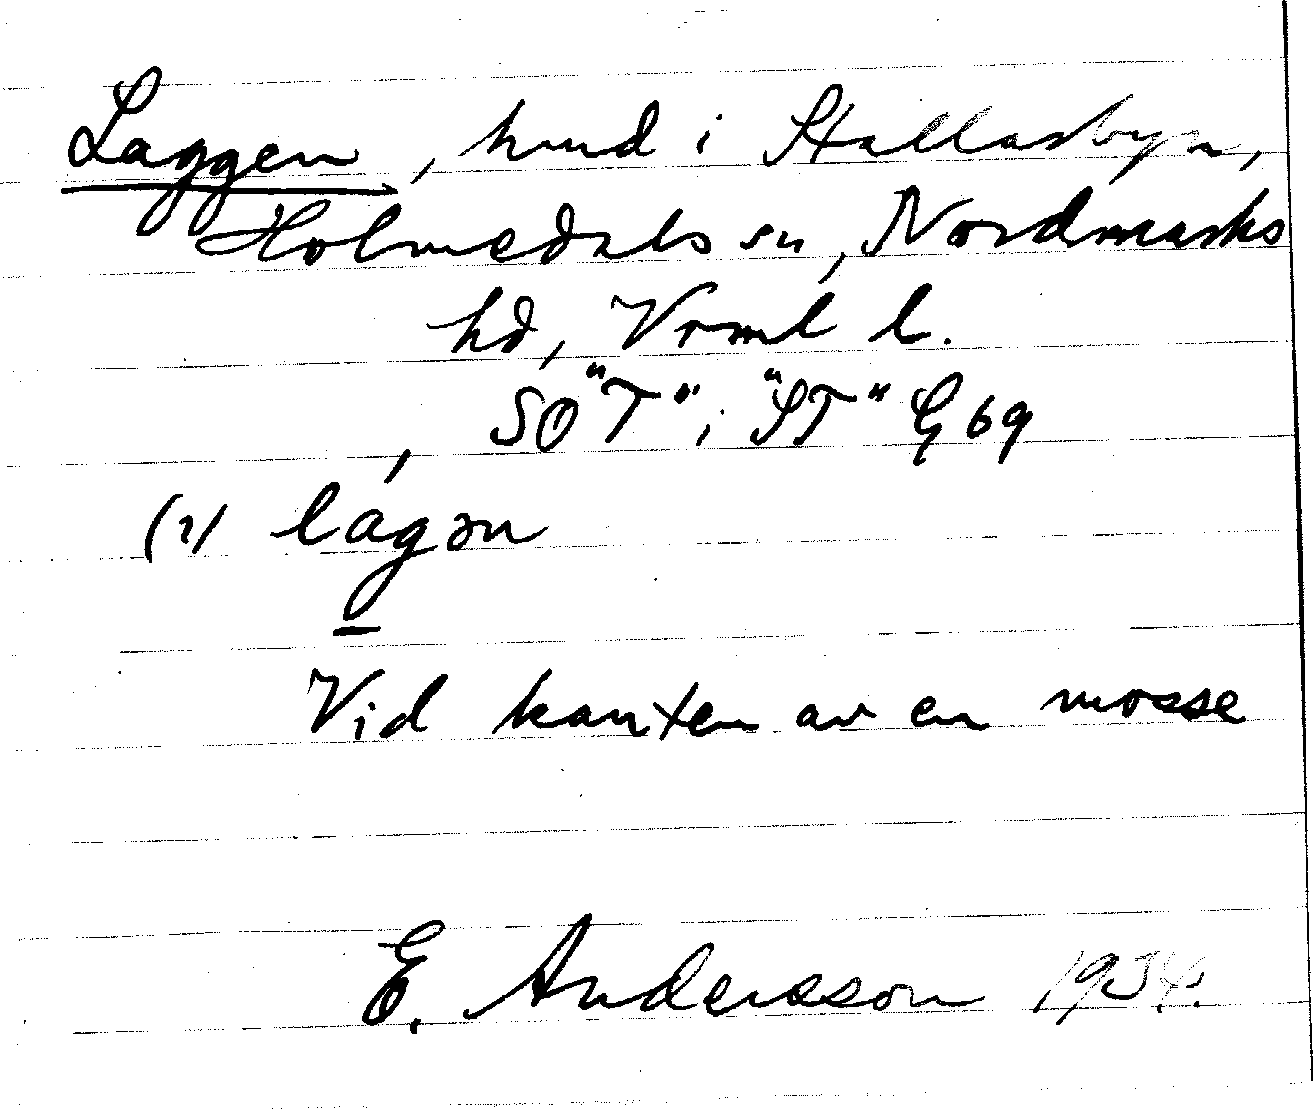 Laggen, hund i Stallarbyn,
Holmedals sn, Nordmarks
hd, Vrml l.
SO "T" i "ST" G 69
(1) lágən
Vid kanten av en mosse
E. Andersson 1934.